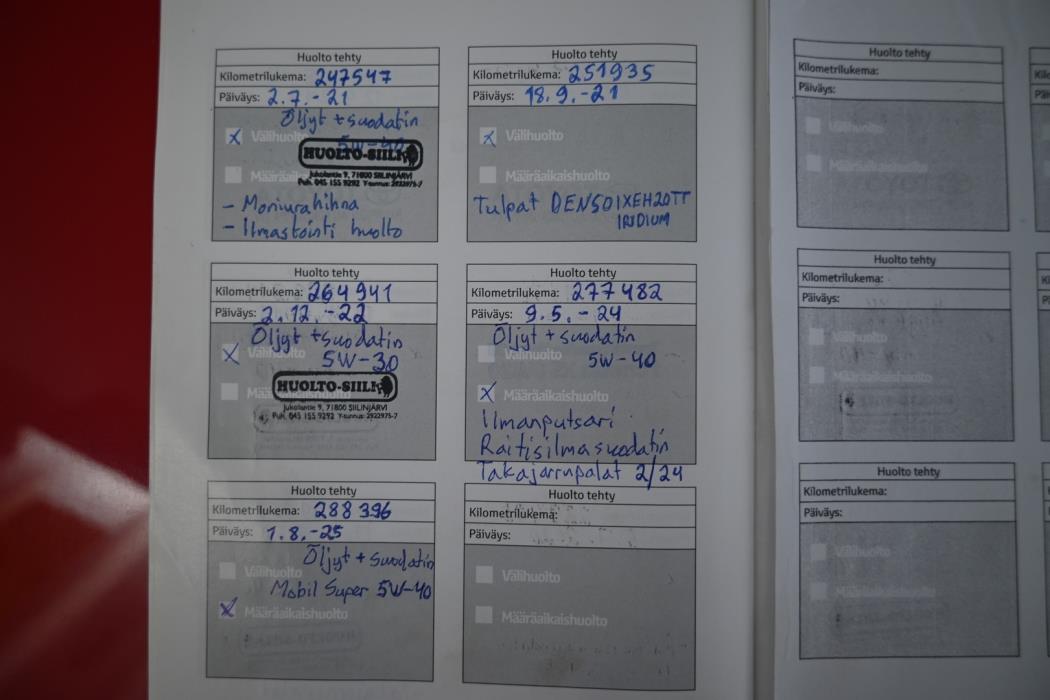 Huolto tehty
Kilometrilukema: 247547
Päiväys: 2.7.-21
Öljyt + suodatin
Välihuolto
5W-40
HUOLTO-SIILI
Määräai
Jukolantie 9, 71800 SIILINJÄRVI
Puh. 045 155 9292 Y-tunnus: 2922975-7
- Moniurahihna
- Ilmastointi huolto
Huolto tehty
Kilometrilukema: 251935
Päiväys: 18.9.-21
X Välihuolto
Määräaikaishuolto
Tulpat DENSO IXEH20TT
IRIDIUM
Huolto tehty
Kilometrilukema: 264941
Päiväys: 2.12.-22
Öljyt + suodatin
X Välihuolto
5W-30
HUOLTO-SIILI
Jukolantie 9, 71800 SIILINJÄRVI
Puh. 045 155 9292 Y-tunnus: 2922975-7
Huolto tehty
Kilometrilukema: 277482
Päiväys: 9.5.-24
Öljyt + suodatin
Välihuolto
5W-40
X Määräaikaishuolto
Ilmanputsari
Raitisilmasuodatin
Takajarrupalat 2/24
Huolto tehty
Kilometrilukema: 288396
Päiväys: 1.8.-25
Öljyt + suodatin
Välihuolto
Mobil Super 5W-40
X Määräaikaishuolto
Huolto tehty
Kilometrilukema:
Päiväys:
Välihuolto
Määräaikaishuolto
Huolto tehty
Kilometrilukema:
Päiväys:
Välihuolto
Määräaikaishuolto
Huolto tehty
Kilometrilukema:
Päiväys:
Välihuolto
Määräaikaishuolto
Huolto tehty
Kilometrilukema:
Päiväys:
Välihuolto
Määräaikaishuolto